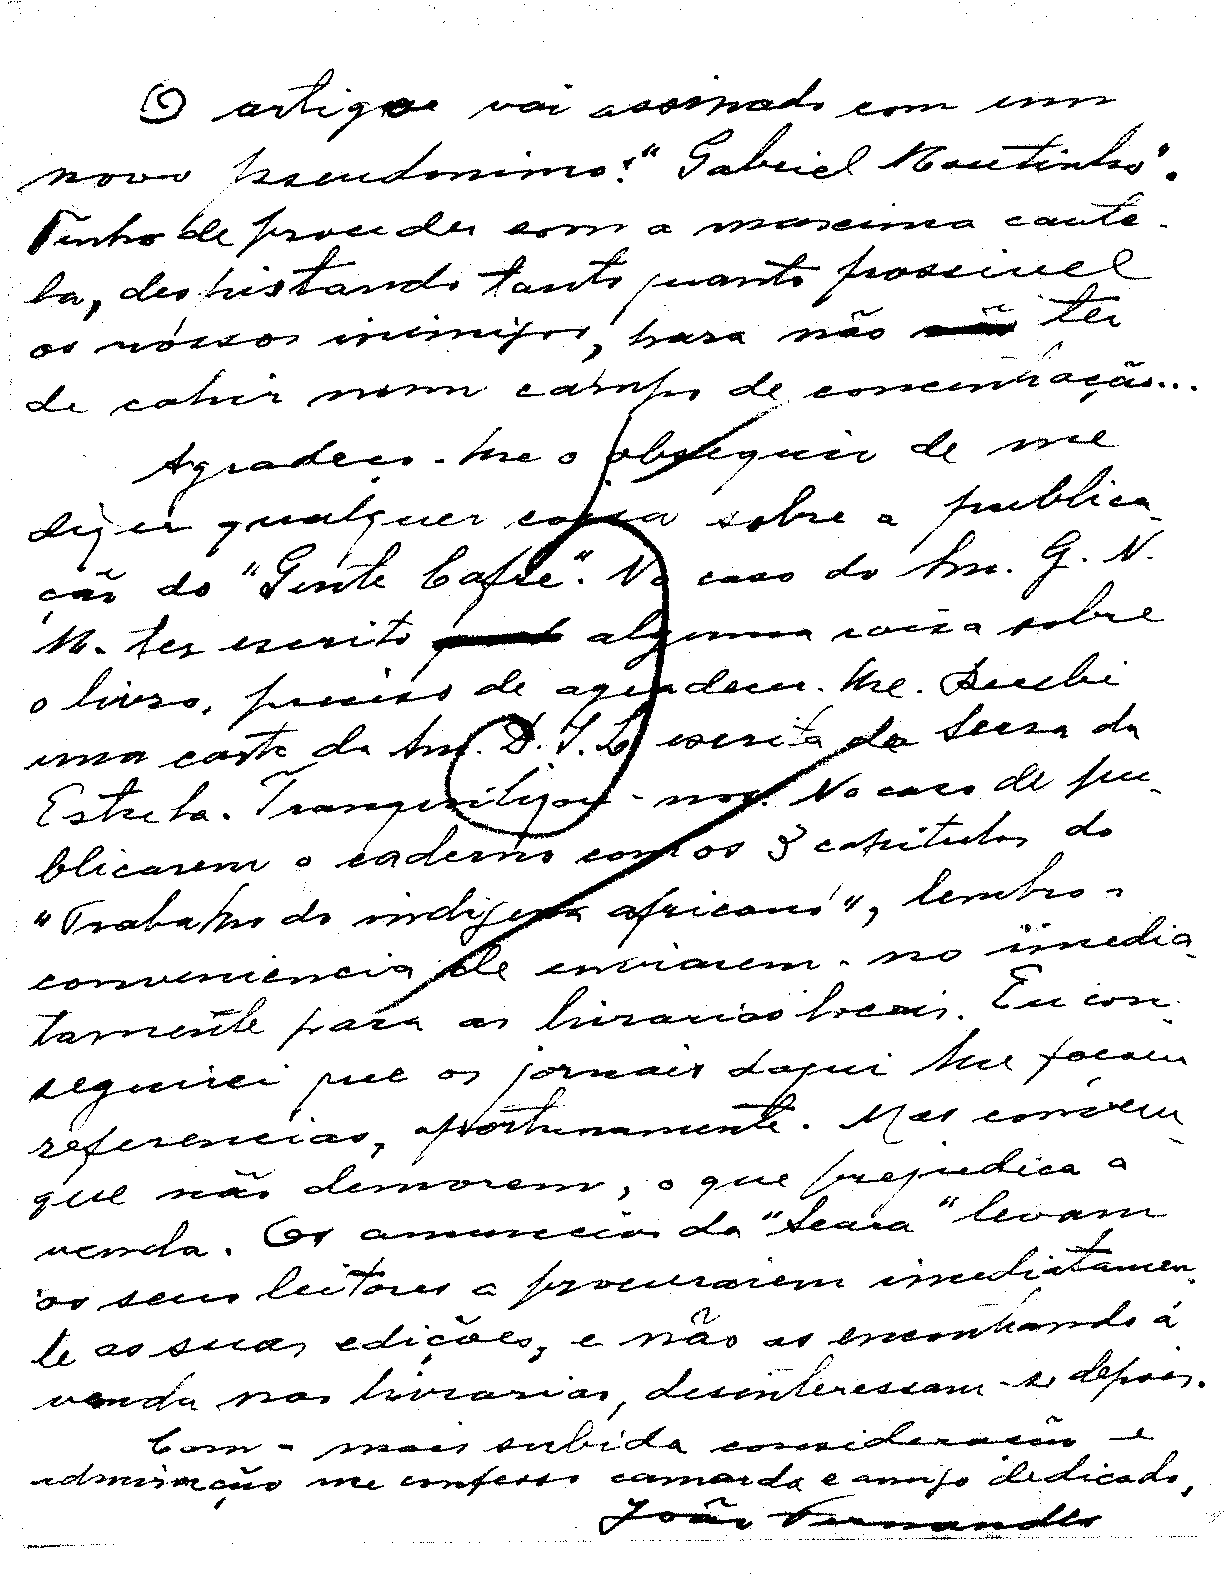 O artigo vai assinado com um
novo pseudonimo: "Gabriel Moutinho".
Tenho de proceder com a maxima caute-
la, despistando tanto quanto possivel
os nóssos inimigos, para não ter
de cahir num campo de concentração...
Agradeço-lhe o obsequio de me
dizer qualquer coisa sobre a publica-
ção do "Gente Cafre". No caso do Snr. G. N.
M. ter escrito alguma coisa sobre
o livro, preciso de agradecer-lhe. Recebi
uma carta da Snr. D. I. L. escrita da Serra da
Estrela. Tranquilizou-nos. No caso de pu-
blicarem o caderno com os 3 capitulos do
"Trabalho do indigena africano", lembro a
conveniencia de enviarem-no imedia-
tamente para as livrarias locais. Eu con-
seguirei que os jornais daqui lhe façam
referencias, oportunamente. Mas convem
que não demorem, o que prejudica a
venda. Os anuncios da "Seara" levam
os seus leitores a procurarem imediatamen-
te as suas edições, e não as encontrando á
venda nas livrarias, desinteressam-se depois.
Com a mais subida consideração e
admiração me confesso camarada e amigo dedicado,
João Fernandes